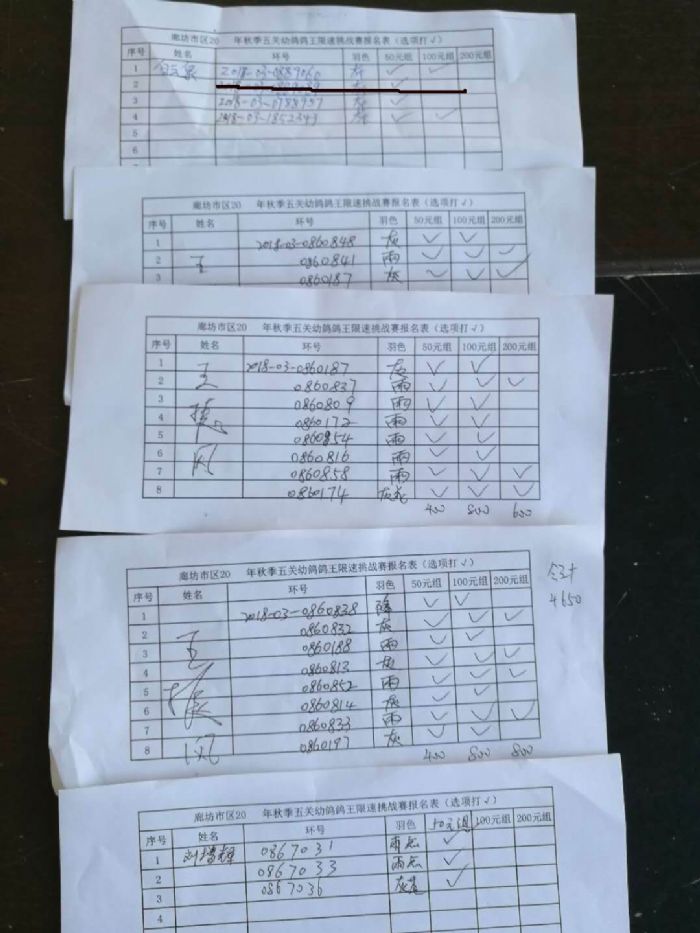 廊坊市区20 年秋季五关幼鸽鸽王限速挑战赛报名表（选项打√）
序号 姓名 环号 羽色 50元组 100元组 200元组
1 2018-03-0889060 灰 √ √
2
3 2018-03-0788957 √
4 2018-03-1852343 √ √
5
6
7
廊坊市区20 年秋季五关幼鸽鸽王限速挑战赛报名表（选项打√）
序号 姓名 环号 羽色 50元组 100元组 200元组
1 2018-03-0860848 灰 √ √
2 王 0860841 雨 √ √ √
3 0860187 灰 √ √ √
廊坊市区20 年秋季五关幼鸽鸽王限速挑战赛报名表（选项打√）
序号 姓名 环号 羽色 50元组 100元组 200元组
1 王 2018-03-0860187 灰 √ √
2 0860837 雨 √ √ √
3 0860809 雨 √ √
4 振 0860172 雨 √ √
5 0860854 雨 √ √
6 风 0860816 雨 √ √
7 0860858 雨 √ √ √
8 0860174 灰花 √ √ √
400 800 600
廊坊市区20 年秋季五关幼鸽鸽王限速挑战赛报名表（选项打√）
序号 姓名 环号 羽色 50元组 100元组 200元组
合计
4650
1 2018-03-0860838 √ √
2 王 0860832 灰 √ √ √
3 0860188 雨 √ √
4 0860813 灰 √ √ √
5 振 0860852 雨 √ √ √
6 0860814 灰 √ √
7 0860833 雨 √ √ √
8 风 0860197 灰 √ √
400 800 800
廊坊市区20 年秋季五关幼鸽鸽王限速挑战赛报名表（选项打√）
序号 姓名 环号 羽色 50元组 100元组 200元组
1 刘增辉 0867031 雨点 √
2 0867033 雨点 √
3 0867036 灰花 √
4
5